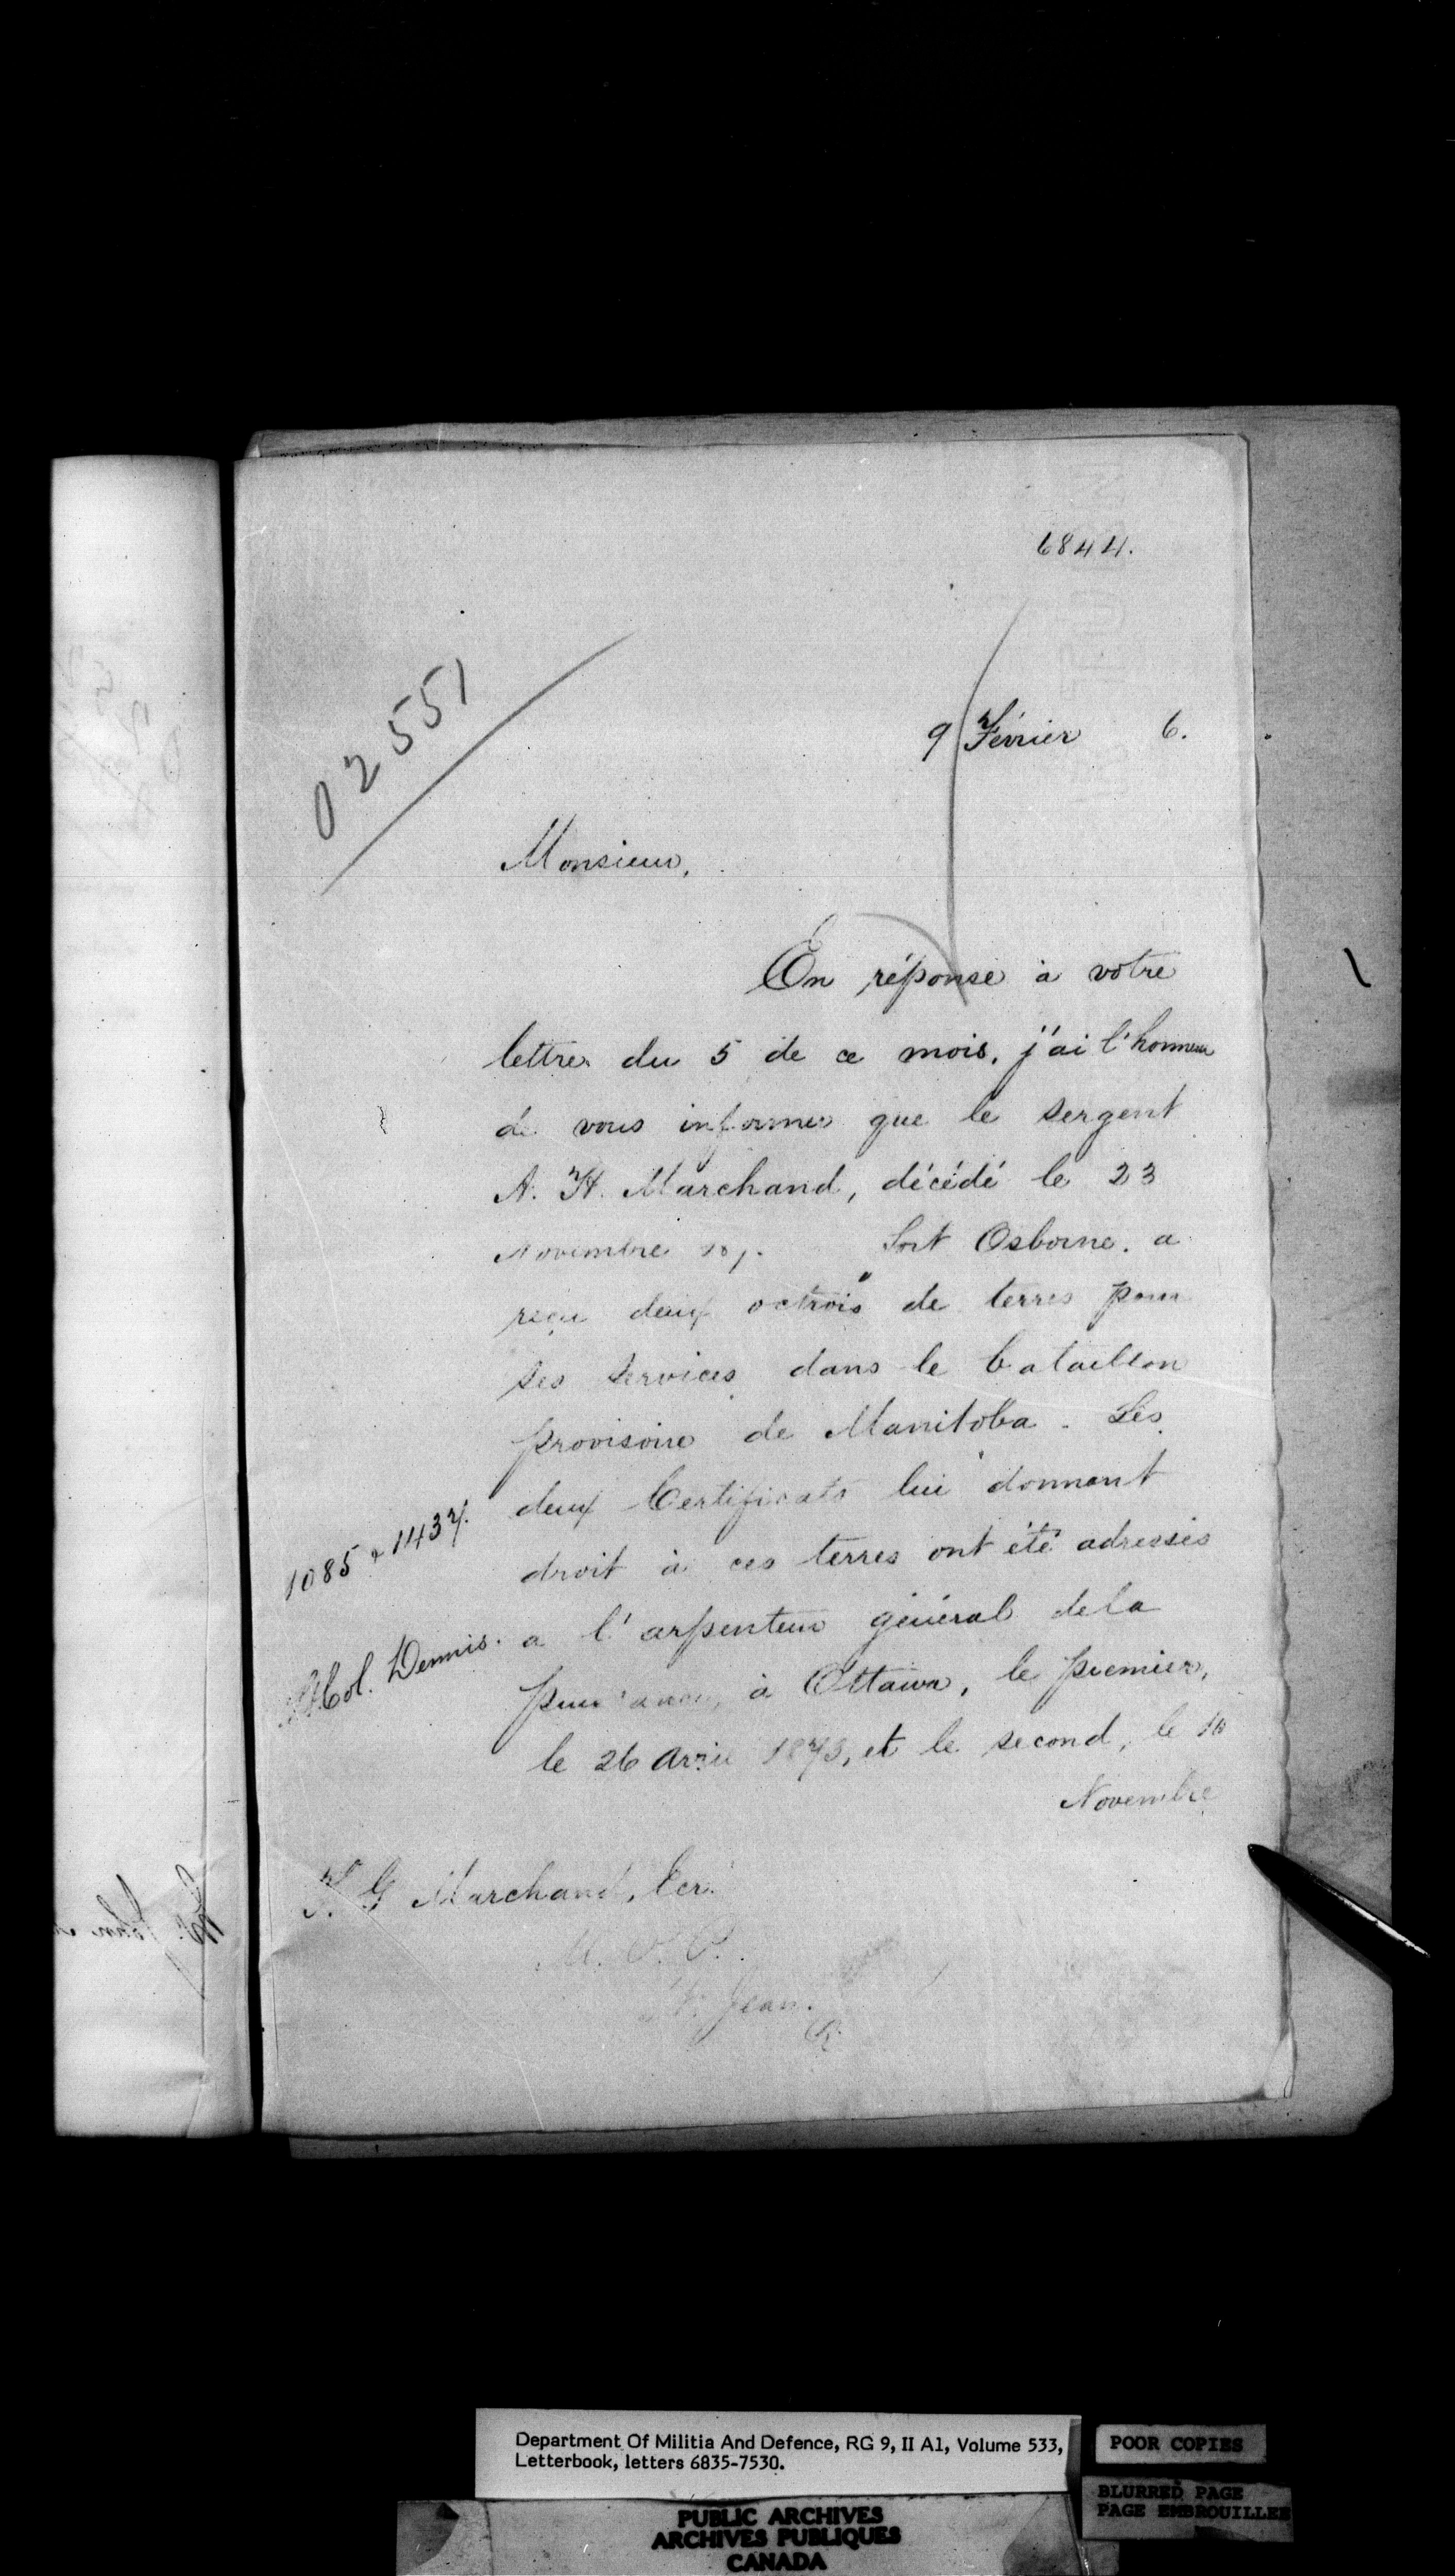 6844.
02551
9 Février 6.
Monsieur,
En réponse à votre
lettre du 5 de ce mois, j'ai l'honneur
de vous informer que le sergent
A. H. Marchand, décédé le 23
Novembre 187 Fort Osborne, a
reçu deux octrois de terres pour
ses services dans le bataillon
provisoire de Manitoba. Les
deux Certificats lui donnant
1085 & 1437.
droit à ces terres ont été adressés
Col. Dennis.
a l'arpenteur général de la
à Ottawa, le premier,
le 26 Avril 1873, et le second, le 10
Novembre
F. G Marchand, Ecr.
M. P. P.
St. Jean.
Department Of Militia And Defence, RG 9, II A1, Volume 533,
Letterbook, letters 6835-7530.
POOR COPIES
BLURRED PAGE
PAGE EMBROUILLEE
PUBLIC ARCHIVES
ARCHIVES PUBLIQUES
CANADA